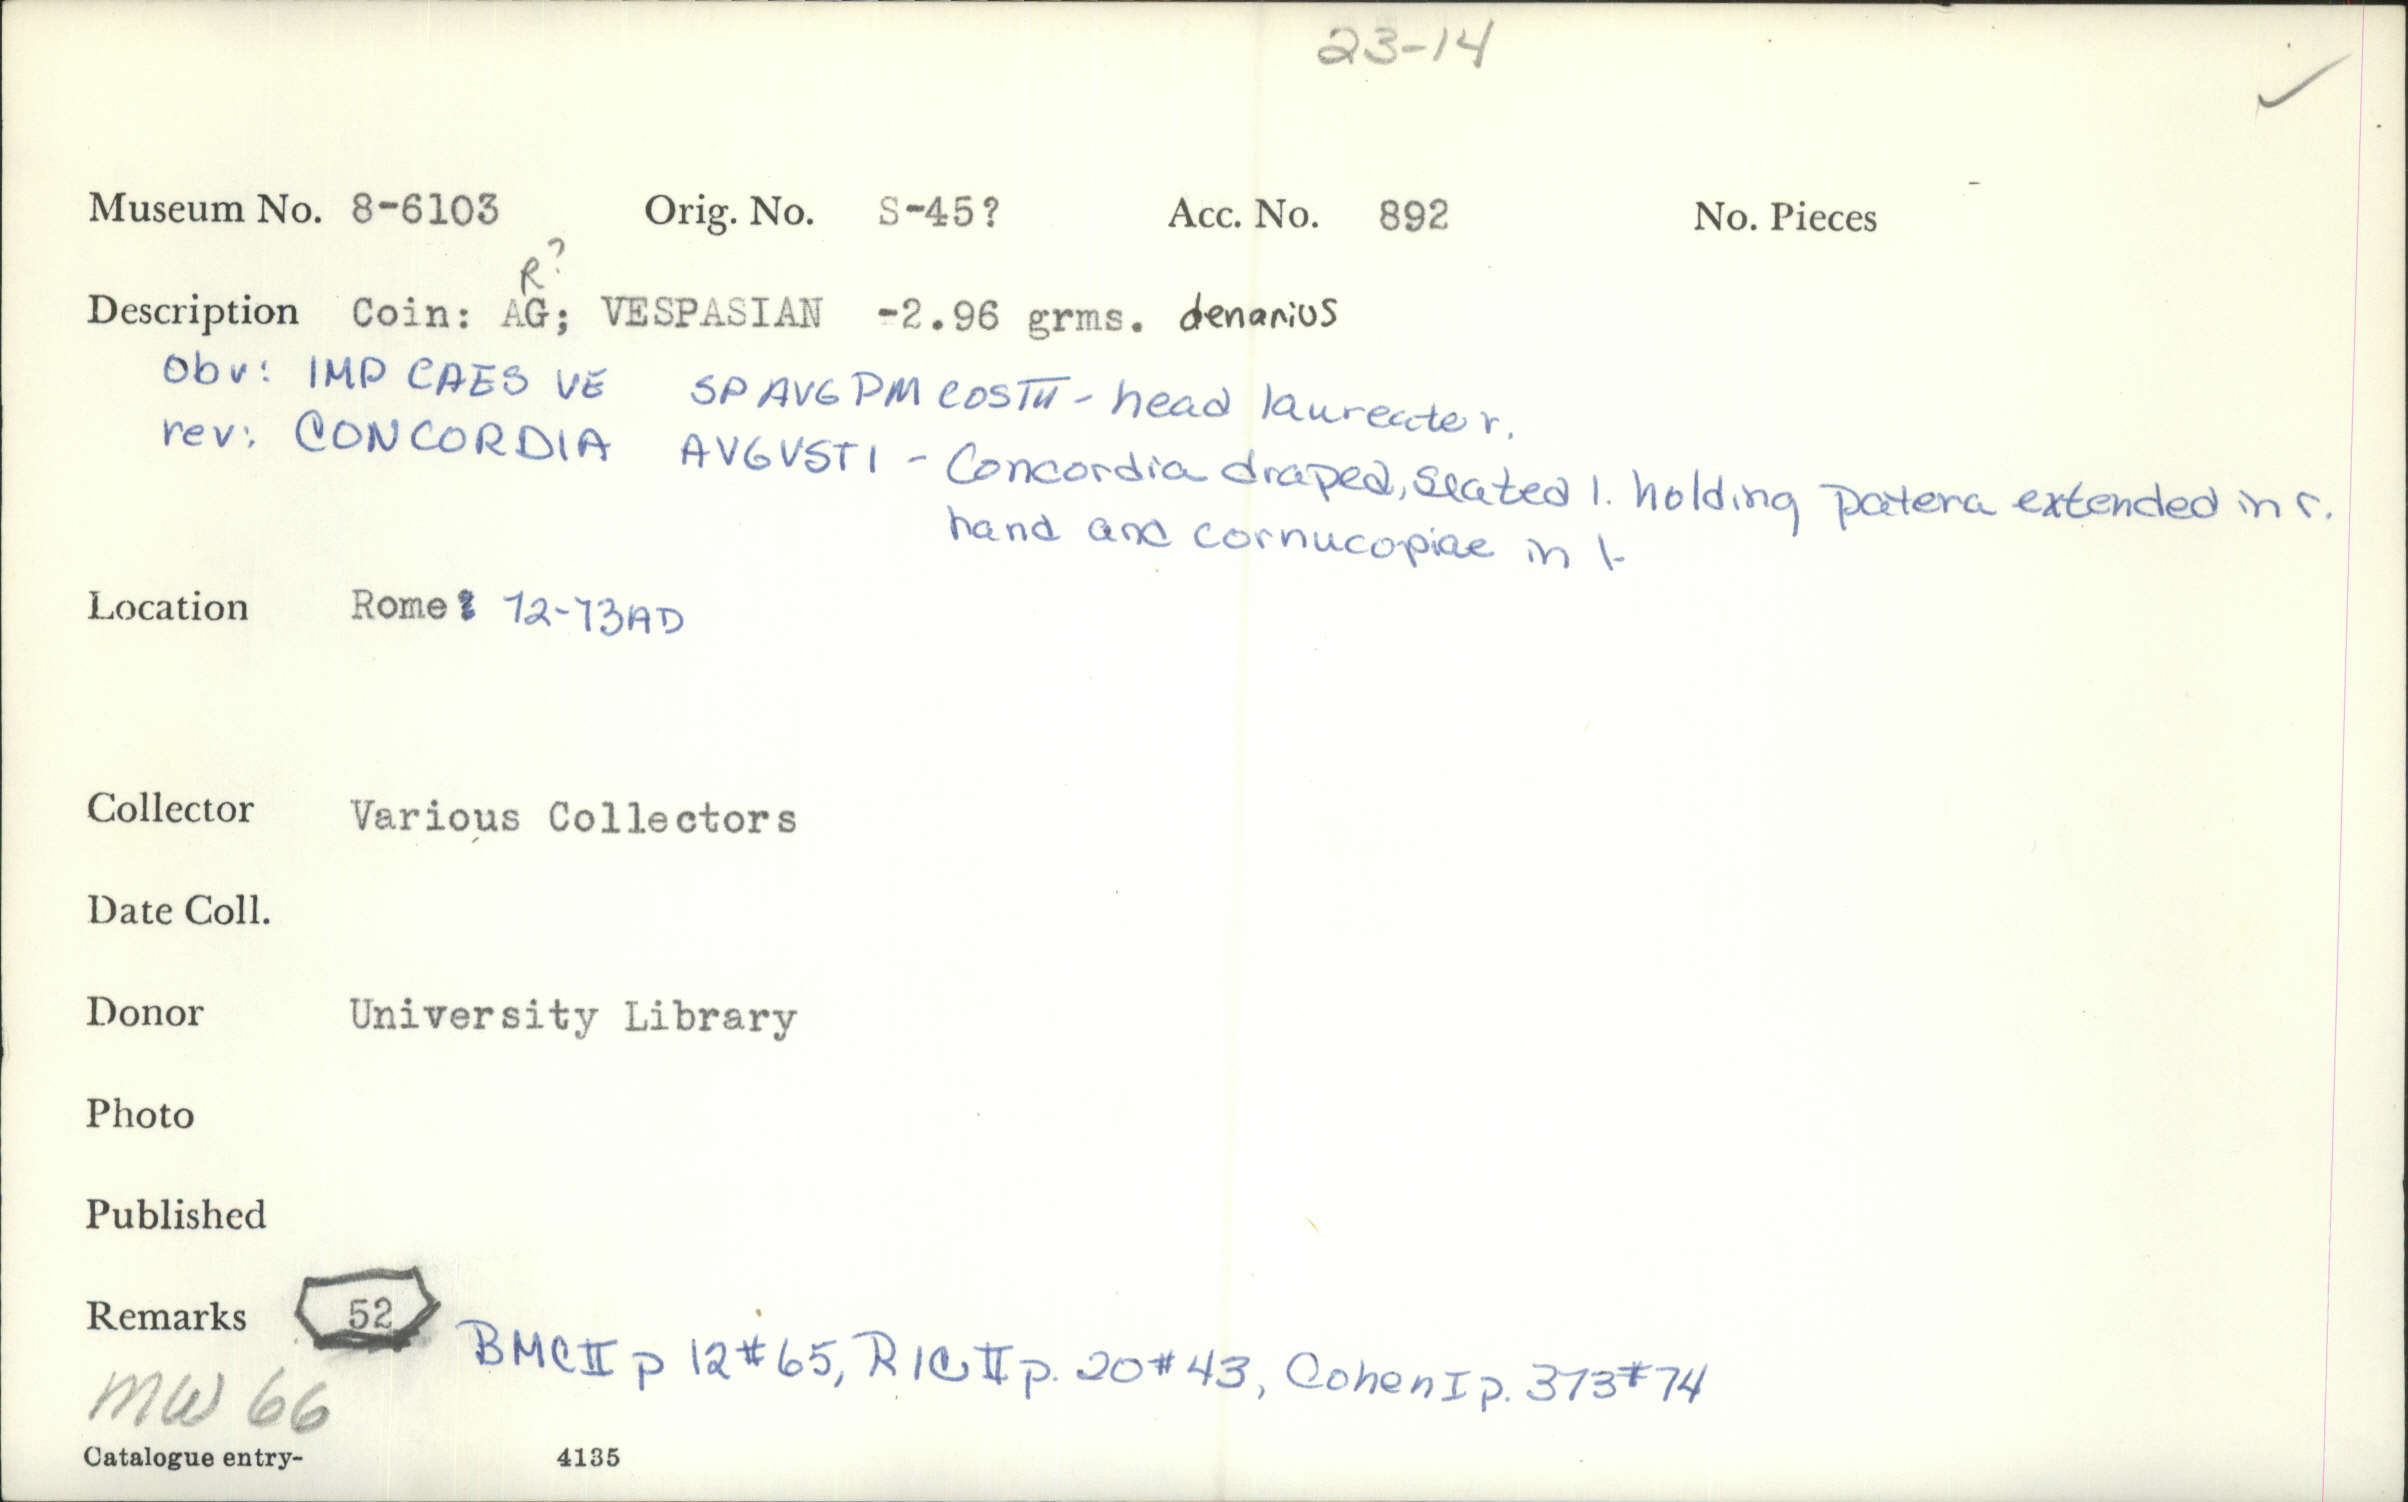 23-14
✓
Museum No. 8-6103 Orig. No. S-45? Acc. No. 892 No. Pieces
R?
Description Coin: AG; VESPASIAN -2.96 grms. denarius
Obv: IMP CAES VE SP AVG PM COS IIII - head laureate r.
rev: CONCORDIA AVGVSTI - Concordia draped, seated l. holding patera extended in r.
hand and cornucopiae in l.
Location Rome: 72-73AD
Collector Various Collectors
Date Coll.
Donor University Library
Photo
Published
Remarks 52 BMC II p 12 #65, RIC II p. 20 #43, Cohen I p. 373 #74
MW 66
Catalogue entry- 4135